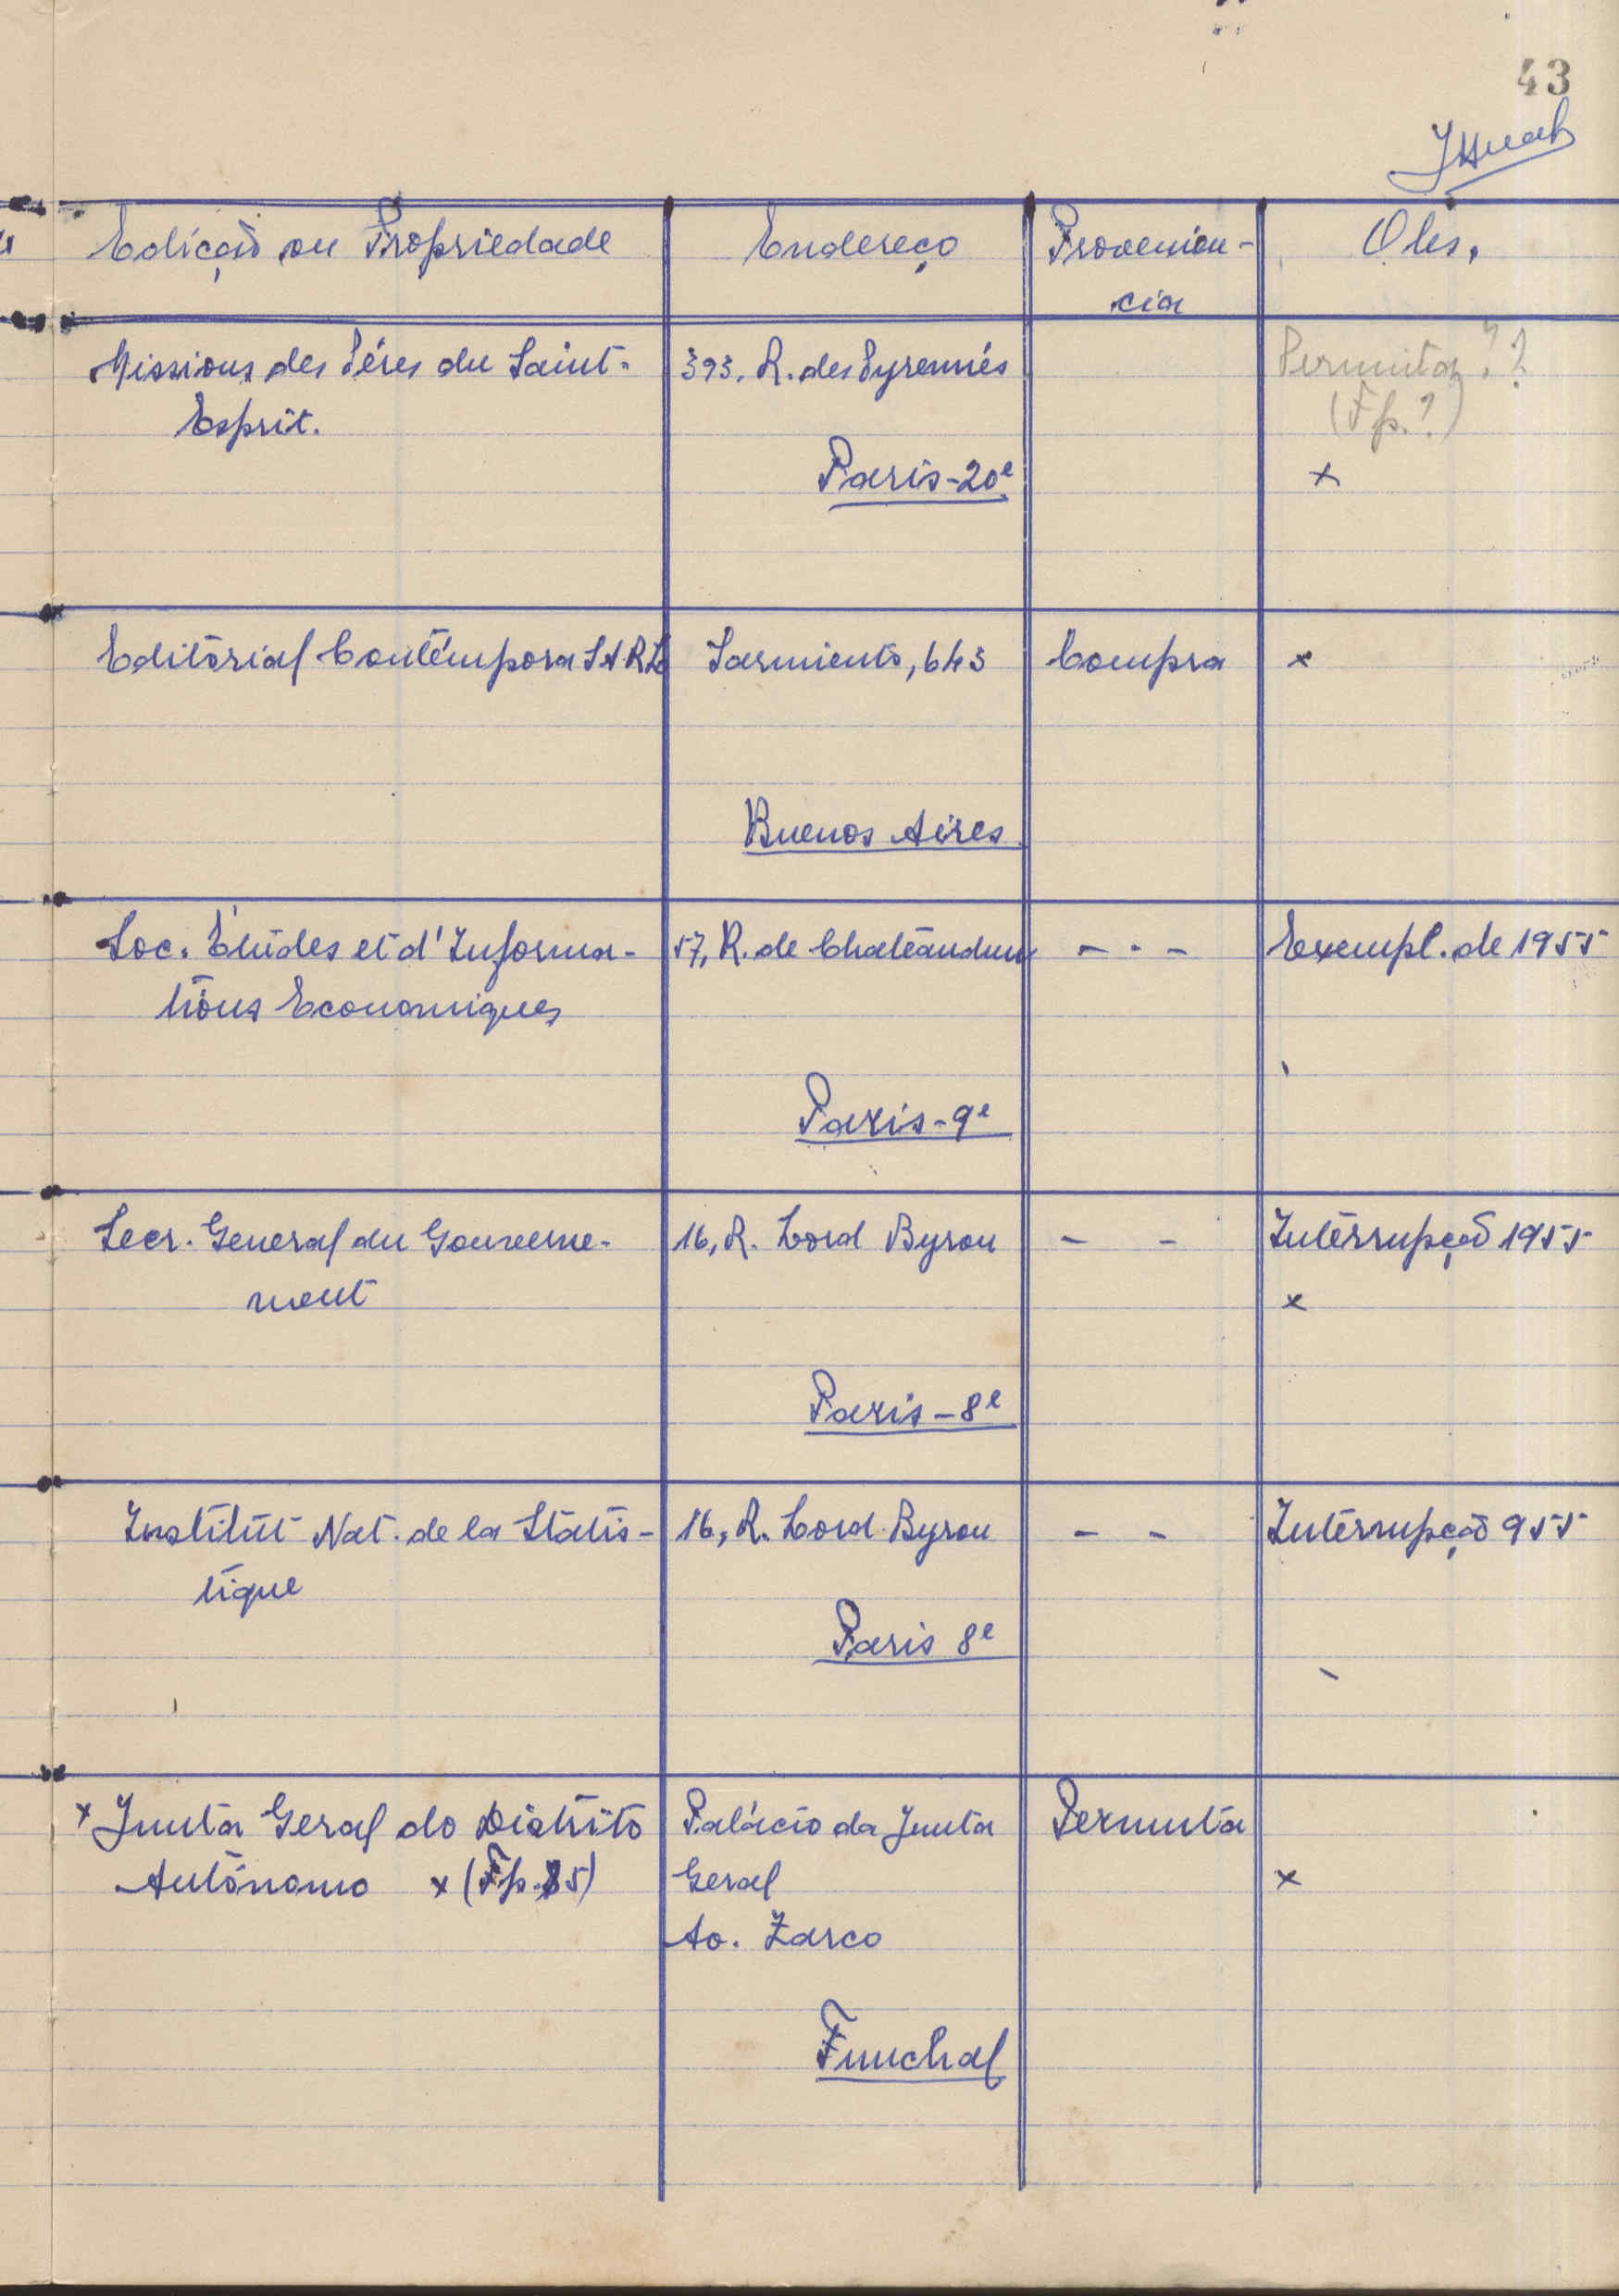 43
Edição ou Propriedade Endereço Provenien- Obs.
cia
Missions des Péres du Saint- 393, R. des Pyrennés Permuta ? ?
Esprit. (Fp. ?)
Paris-20e x
Editorial Contémpora S A R L Sarmiento, 643 Compra x
Buenos Aires
Soc. Études et d'Informa- 57, R. de Chateaudun - . - Exempl. de 1955
tions Economiques
Paris-9e
Secr. General du Gouverne- 16, R. Lord Byron - - Interrupção 1955
ment x
Paris-8e
Institut Nat. de la Statis- 16, R. Lord Byron - - Interrupção 955
tique
Paris 8e
x Junta Geral do Distrito Palácio da Junta Permuta
Autónomo x (Fp. 85) Geral x
Av. Zarco
Funchal